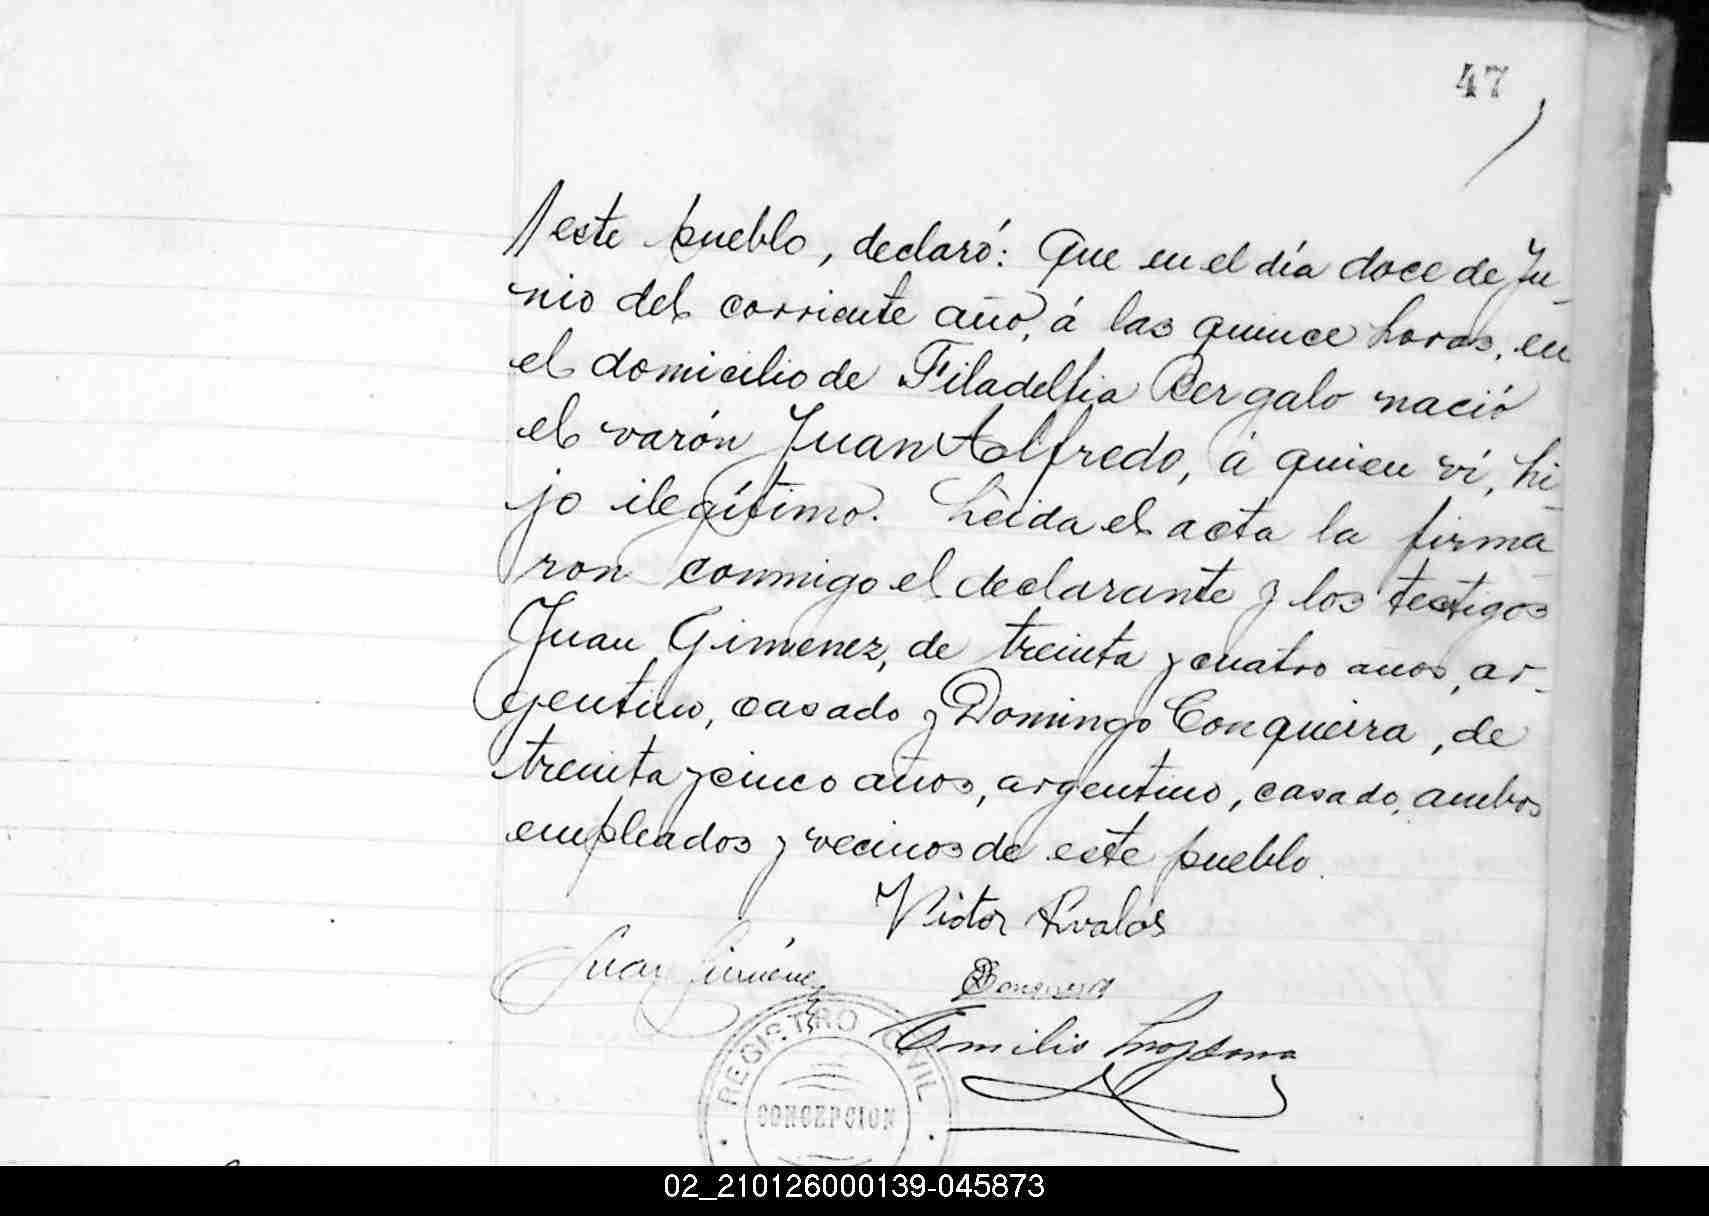 47
este pueblo, declaró: Que en el día doce de Ju-
nio del corriente año, á las quince horas, en
el domicilio de Filadelfia Bergalo nació
el varón Juan Alfredo, á quien ví, hi-
jo ilegítimo. Leida el acta la firma
ron conmigo el declarante y los testigos
Juan Gimenez, de treinta y cuatro años, ar-
gentino, casado y Domingo Conqueira, de
treinta y cinco años, argentino, casado, ambos
empleados y vecinos de este pueblo.
Victor Avalos
Juan Giménez
Emilio
REGISTRO CIVIL
CONCEPCION
02_210126000139-045873